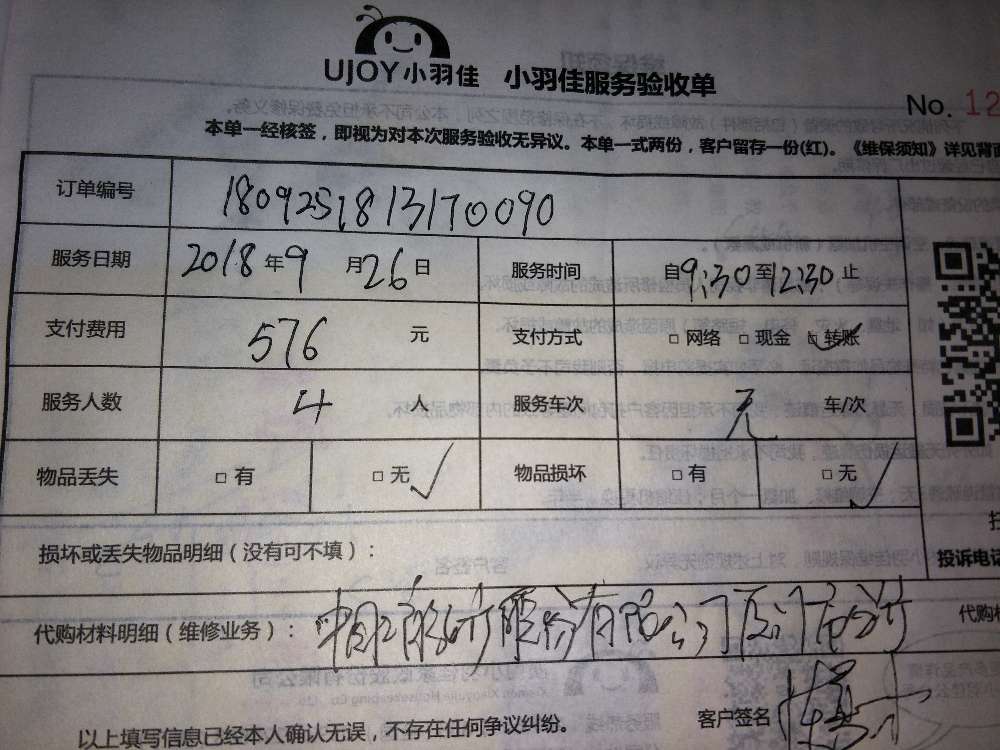 UJOY小羽佳 小羽佳服务验收单
No. 12
本单一经核签，即视为对本次服务验收无异议。本单一式两份，客户留存一份(红)。《维保须知》详见背面
订单编号 1809251813170090
服务日期 2018年9月26日 服务时间 自9:30至12:30止
支付费用 576 元 支付方式 □ 网络 □ 现金 □ 转账
服务人数 4 人 服务车次 无 车/次
物品丢失 □ 有 □ 无 ✓ 物品损坏 □ 有 □ 无 ✓
损坏或丢失物品明细（没有可不填）：
投诉电话
代购材料明细（维修业务）： 股份有限公司厦门 代购材
客户签名
以上填写信息已经本人确认无误，不存在任何争议纠纷。